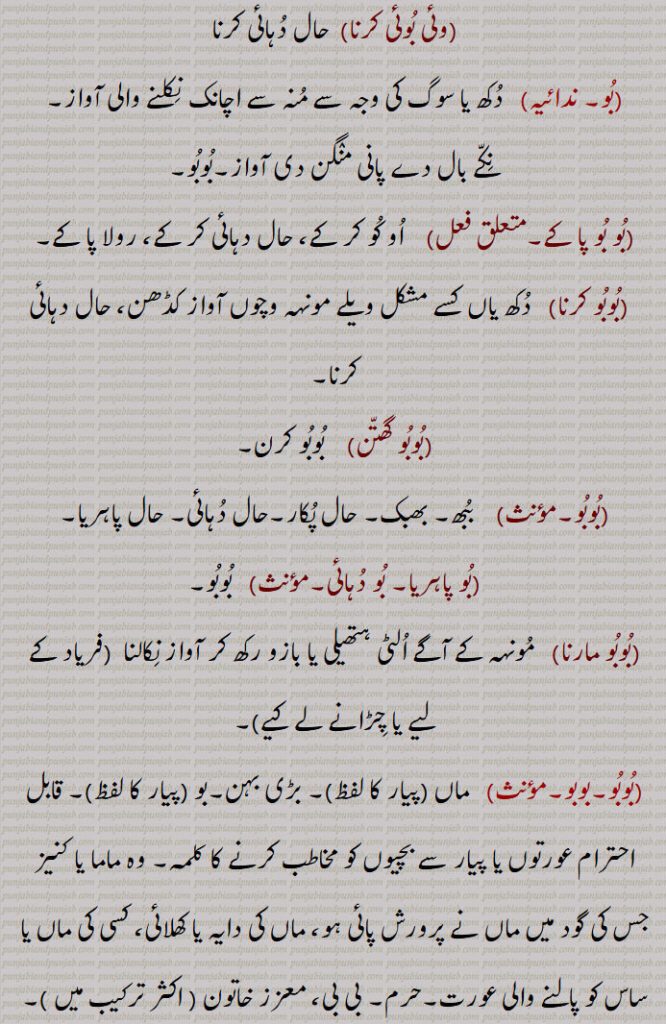 (وئی بُوئی کرنا) حال دُہائی کرنا
(بُو۔ ندائیہ) دُکھ یا سوگ کی وجہ سے مُنہ سے اچانک نِکلنے والی آواز۔
نِکّے بال دے پانی منٛگن دی آواز۔بُوبُو۔
(بُو بُو پا کے۔متعلق فعل) اُو کُو کر کے، حال دہائی کر کے، رولا پا کے۔
(بُوبُو کرنا) دُکھ یاں کسے مشکل ویلے مونہہ وچوں آواز کڈھن، حال دہائی
کرنا۔
(بُوبُو گھتّن) بُوبُو کرن۔
(بُوبُو۔مؤنث) بُبھ۔ بھبک۔ حال پُکار۔حال دُہائی۔ حال پاہریا۔
(بُو پاہریا۔ بُو دُہائی۔مؤنث) بُوبُو۔
(بُوبُو مارنا) مُونہہ کے آگے اُلٹی ہتھیلی یا بازو رکھ کر آواز نِکالنا (فریاد کے
لیے یا چِڑانے لے کیے)۔
(بُوبُو۔بوبو۔مؤنث) ماں (پیار کا لفظ)۔ بڑی بہن۔بو (پیار کا لفظ)۔ قابل
احترام عورتوں یا پیار سے بچیوں کو مخاطب کرنے کا کلمہ۔ وہ ماما یا کنیز
جس کی گود میں ماں نے پرورش پائی ہو، ماں کی دایہ یا کھلائی، کسی کی ماں یا
ساس کو پالنے والی عورت۔حرم۔ بی بی، معزز خاتون ( اکثر ترکیب میں )۔